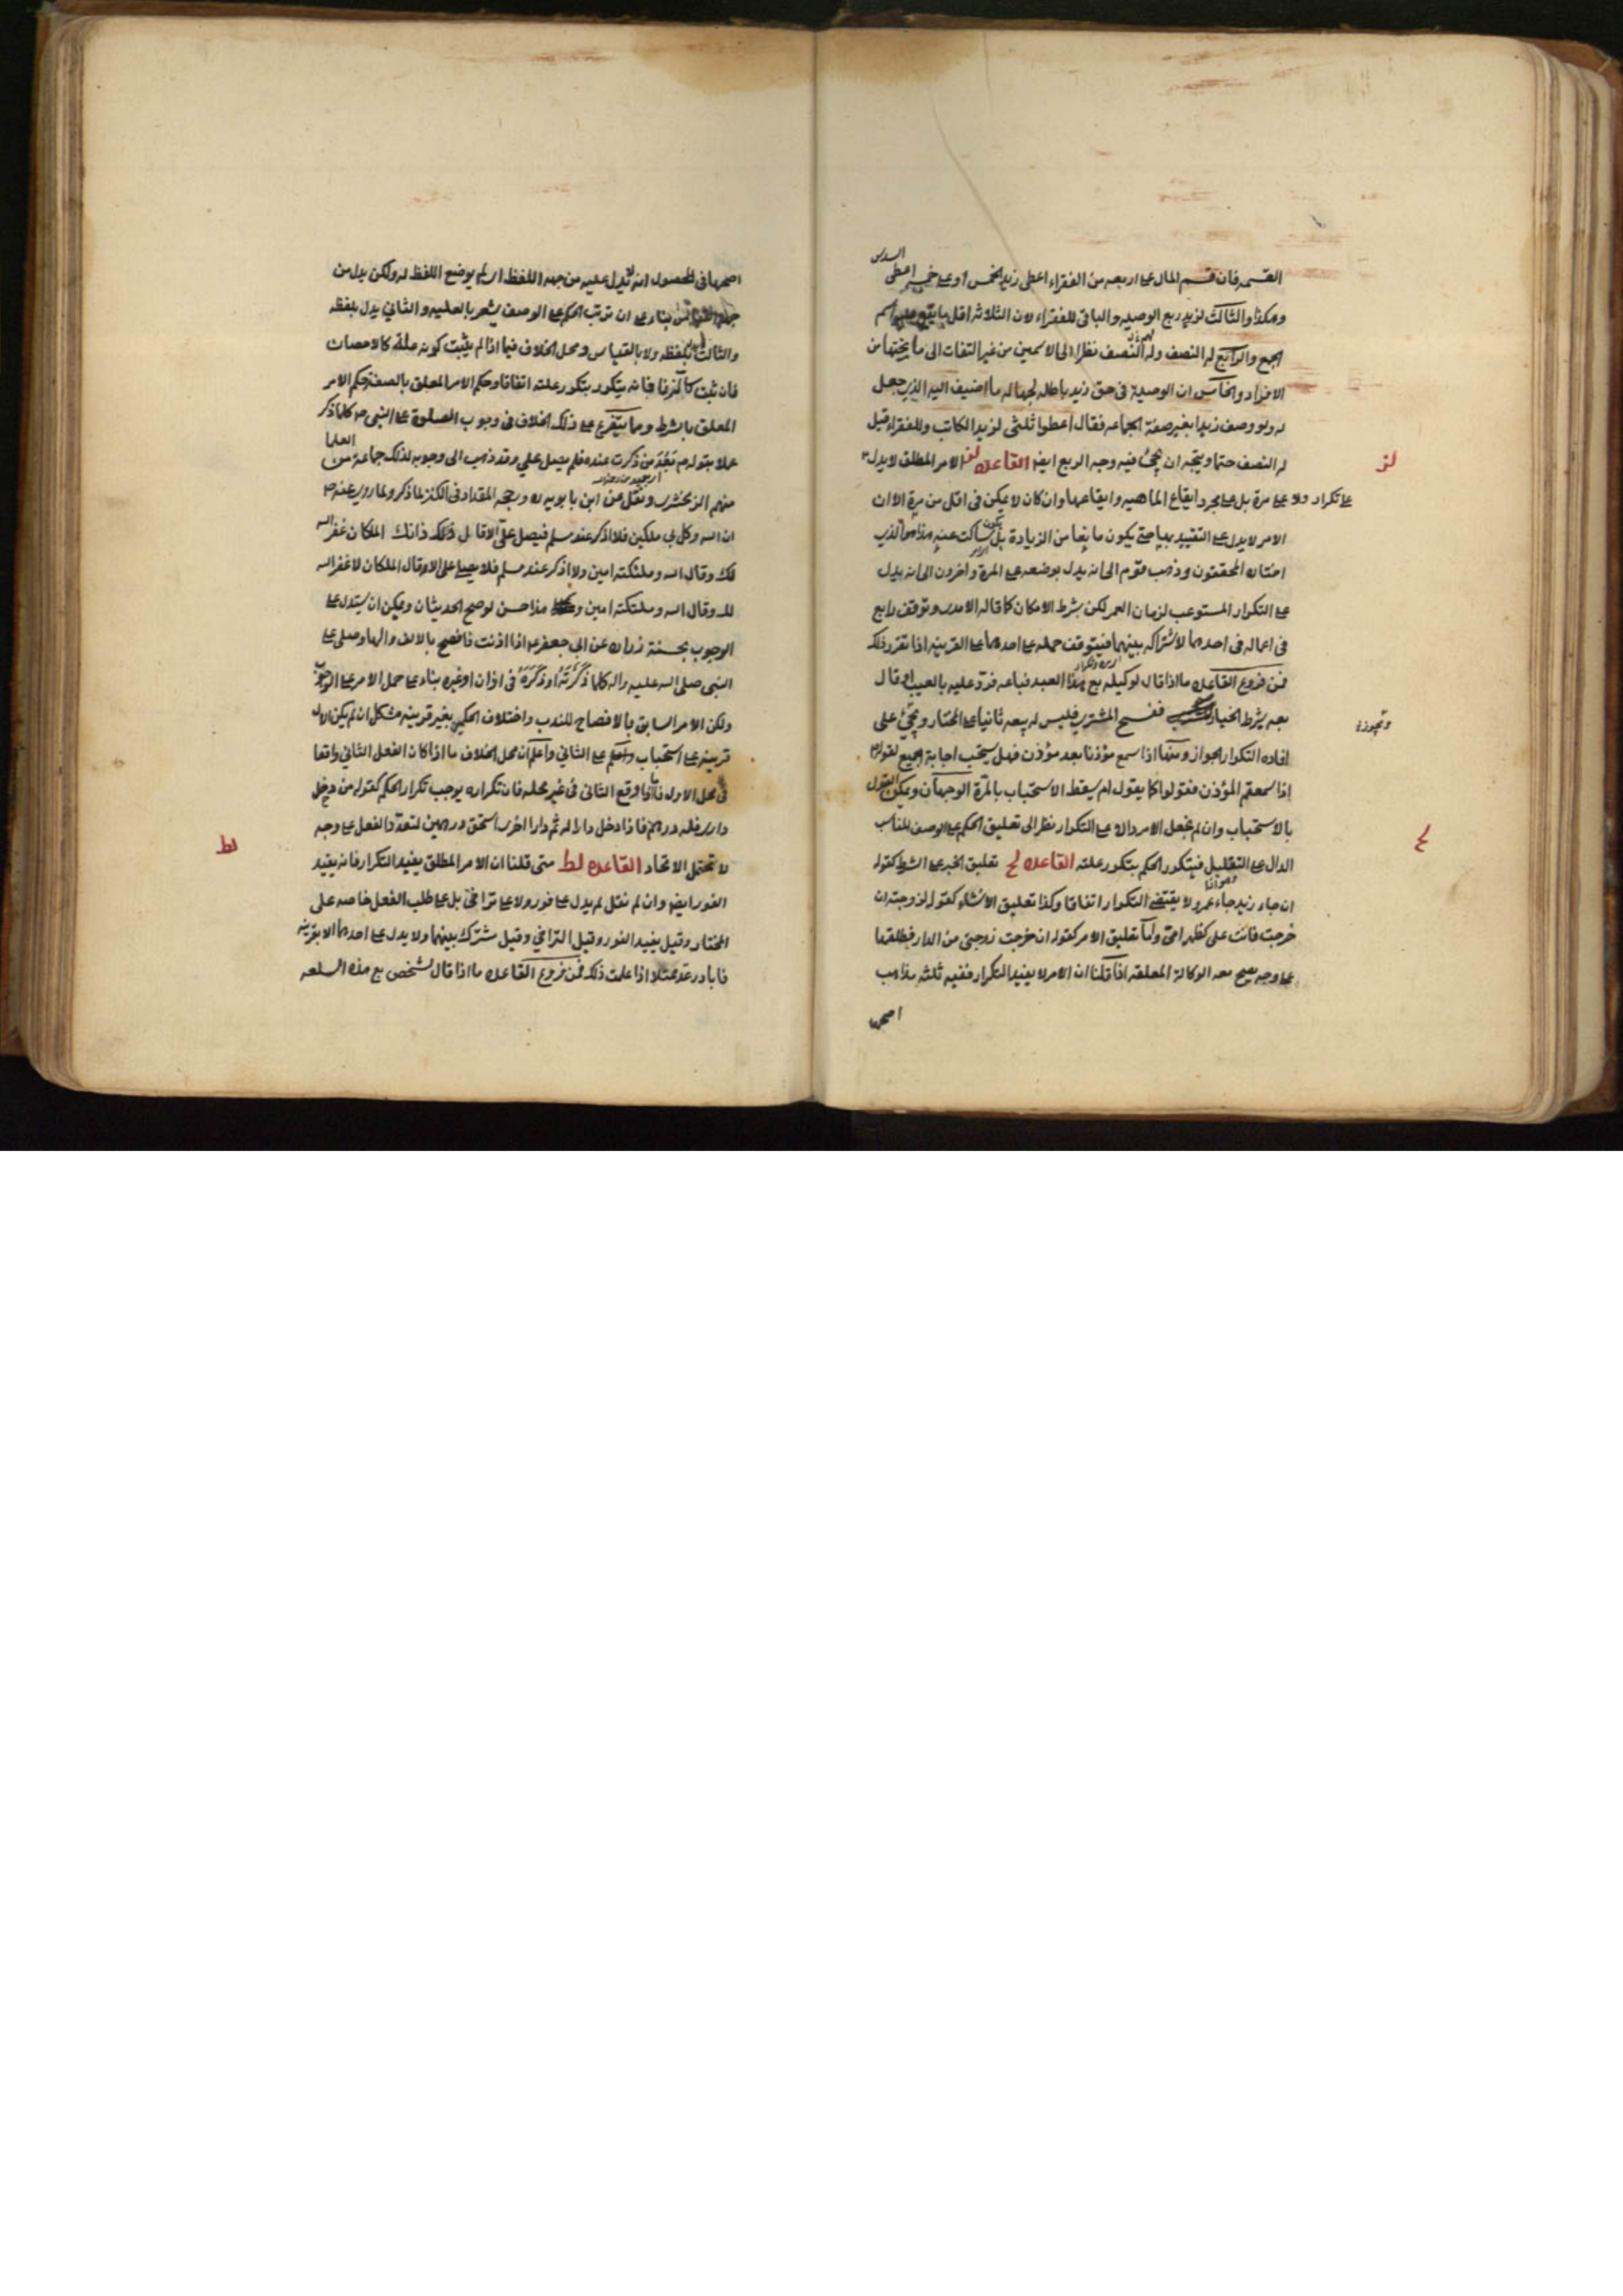 السدس
القسمه فان قسم المال على اربعه من الفقراء اعطى زيد الخمس او على خمسه اعطى
وهكذا والثالث لزيد ربع الوصيه والباقى للفقراء لان الثلاثه اقل ما يقع عليه اسم
الجمع والرابع له النصف ولهم النصف نظرا الى الاسمين من غير التفات الى ما تحتها من
الافراد والخامس ان الوصية فى حق زيد باطله لجهاله ما اضيف اليه الذى جعل
له ولو وصف زيدا بغير صفة الجماعه فقال اعطوا ثلثى لزيد الكاتب وللفقراء قيل
له النصف حتما ويتجه ان يجئ فيه وجه الربع ايضا القاعده لز الامر المطلق لا يدل
لز
على تكرار ولا على مرة بل على مجرد ايقاع الماهيه وايقاعها وان كان لا يمكن فى اقل من مرة الا ان
الامر لا يدل على التقييد بها حتى يكون مانعا من الزيادة بل يكون ساكت عنه هذا هو الذى
اختاره المحققون وذهب قوم الى انه يدل بوضعه على المرة واخرون الى انه يدل
على التكرار المستوعب لزمان العمر لكن بشرط الامكان كما قاله الامدى وتوقف رابع
فى اعماله فى احدهما لاشتراكه بينهما فيتوقف حمله على احدهما على القرينه اذا تقرر ذلك
فمن فروع القاعده ما اذا قال لوكيله بع هذا العبد فباعه فرد عليه بالعيب او قال
بعه بشرط الخيار ففسخ المشترى فليس له بيعه ثانيا على المختار ويجئ على
وتجوزه
افاده التكرار الجواز ومنها اذا سمع مؤذنا بعد مؤذن فهل يستحب اجابة الجميع لقوله
اذا سمعتم المؤذن فقولوا كما يقول ام يسقط الاستحباب بالمرة الوجهان ويمكن القول
بالاستحباب وان لم نجعل الامر دالا على التكرار نظرا الى تعليق الحكم على الوصف المناسب
الدال على التعليل فيتكرر الحكم بتكرر علته القاعده لح تعليق الخبر على الشرط كقوله
لح
ان جاء زيد جاء عمرو لا يقتضى التكرار اتفاقا وكذا تعليق الانشاء كقوله لزوجته ان
خرجت فانت على كظهر امى واما تعليق الامر كقوله ان خرجت زوجتى من الدار فطلقها
على وجه يصح معه الوكالة المعلقه اذا قلنا ان الامر لا يفيد التكرار ففيه ثلثه مذاهب
اصحها
اصحها فى المحصول انه لا يدل عليه من جهه اللفظ اى لم يوضع اللفظ له ولكن يدل من
جهة القياس بناء على ان ترتب الحكم على الوصف يشعر بالعليه والثانى يدل بلفظه
والثالث لا بلفظه ولا بالقياس ومحل الخلاف فيما اذا لم يثبت كونه علة كالاحصان
فان ثبت كالزنا فانه يتكرر بتكرر علته اتفاقا وحكم الامر المعلق بالصفة حكم الامر
المعلق بالشرط ومما يتفرع على ذلك الخلاف فى وجوب الصلوة على النبى ص كلما ذكر
عملا بقوله ص من ذكرت عنده فلم يصل علي وقد ذهب الى وجوبه لذلك جماعة من العلما
منهم الزمخشرى ونقل عن ابن بابويه ره ورجحه المقداد فى الكنز لما ذكر ولما روى عنه ص
ان الله وكل بى ملكين فلا اذكر عند مسلم فيصلى علي الا قال ذلك ذانك الملكان غفر الله
لك وقال الله وملئكته امين ولا اذكر عند مسلم فلا يصلى على الا وقال الملكان لا غفر الله
لك وقال الله وملئكته امين هذا حسن لو صح الحديثان ويمكن ان يستدل على
الوجوب بحسنة زراره عن ابى جعفر ع اذا اذنت فافصح بالالف والها وصلى على
النبى صلى الله عليه واله كلما ذكرته او ذكره فى اذان او غيره بناء على حمل الامر على الوجوب
ولكن الامر السابق بالافصاح للندب واختلاف الحكمين بغير قرينه مشكل ان لم يكن الاول
قرينه على استحباب الثانى واعلم ان محل الخلاف ما اذا كان الفعل الثانى واقعا
فى محل الاول فاذا وقع الثانى فى غير محله فان تكراره يوجب تكرار الحكم كقوله من دخل
دارى فله درهم فاذا دخل دارا له ثم دارا اخرى استحق درهمين لتعدد الفعل على وجه
لا تحتمل الاتحاد القاعده لط متى قلنا ان الامر المطلق يفيد التكرار فانه يفيد
لط
الفور ايضا وان لم نقل لم يدل على فور ولا على تراخى بل على طلب الفعل خاصه على
المختار وقيل يفيد الفور وقيل التراخى وقيل مشترك بينهما ولا يدل على احدهما الا بقرينه
فان بادر عد ممتثلا اذا علمت ذلك فمن فروع القاعده ما اذا قال لشخص بع هذه السلعه